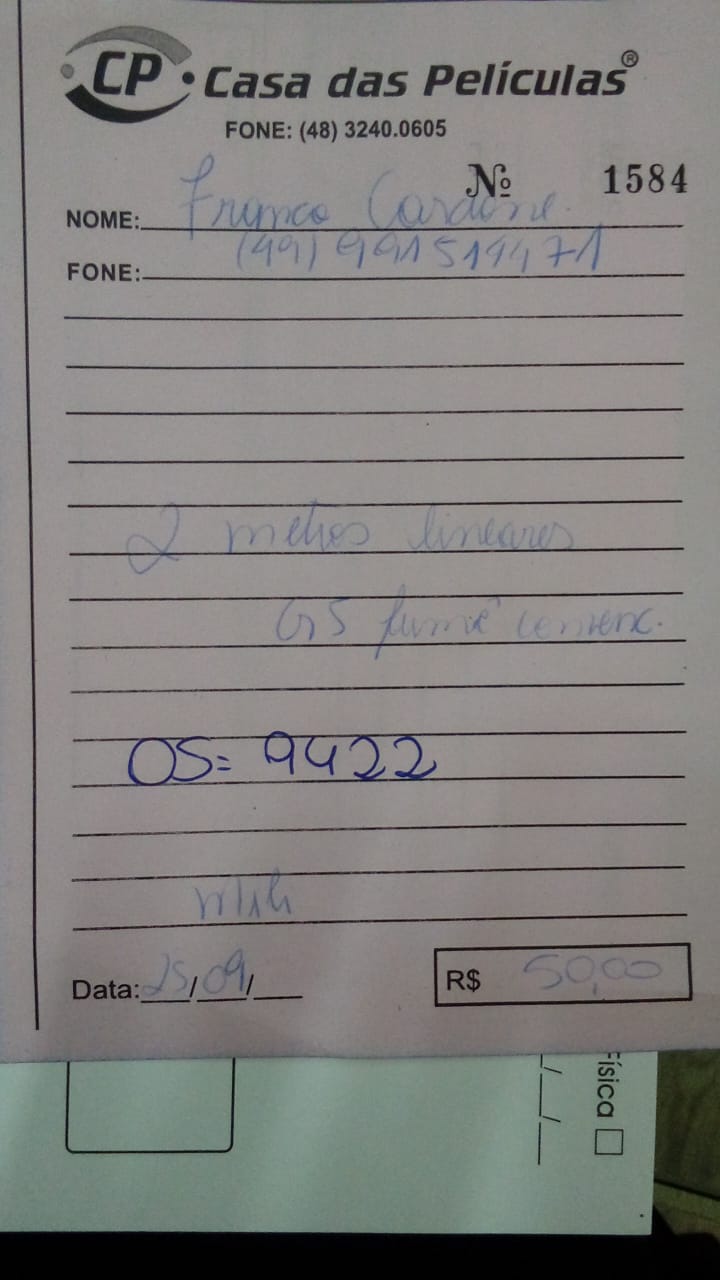 CP • Casa das Películas®
FONE: (48) 3240.0605
Nº 1584
NOME: Franco Cardone.
FONE: (49) 991519471
2 metros lineares
G5 fumê
OS= 9422
Data: 25/09/
R$ 50,00
Física